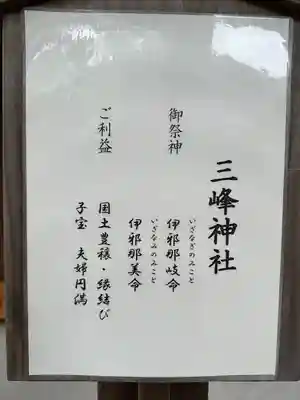 三峰神社
いざなぎのみこと
御祭神 伊邪那岐命
いざなみのみこと
伊邪那美命
ご利益 国土豊穣・縁結び
子宝 夫婦円満